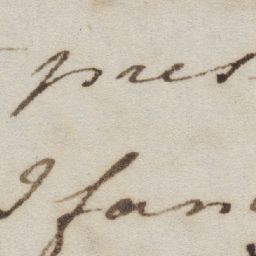 pres
I fan